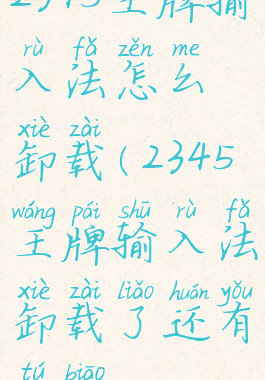 2345王牌输
rù fǎ zěn me
入法怎么
xiè zài
卸载(2345
wáng pái shū rù fǎ
王牌输入法
xiè zài liǎo huán yǒu
卸载了还有
tú biāo